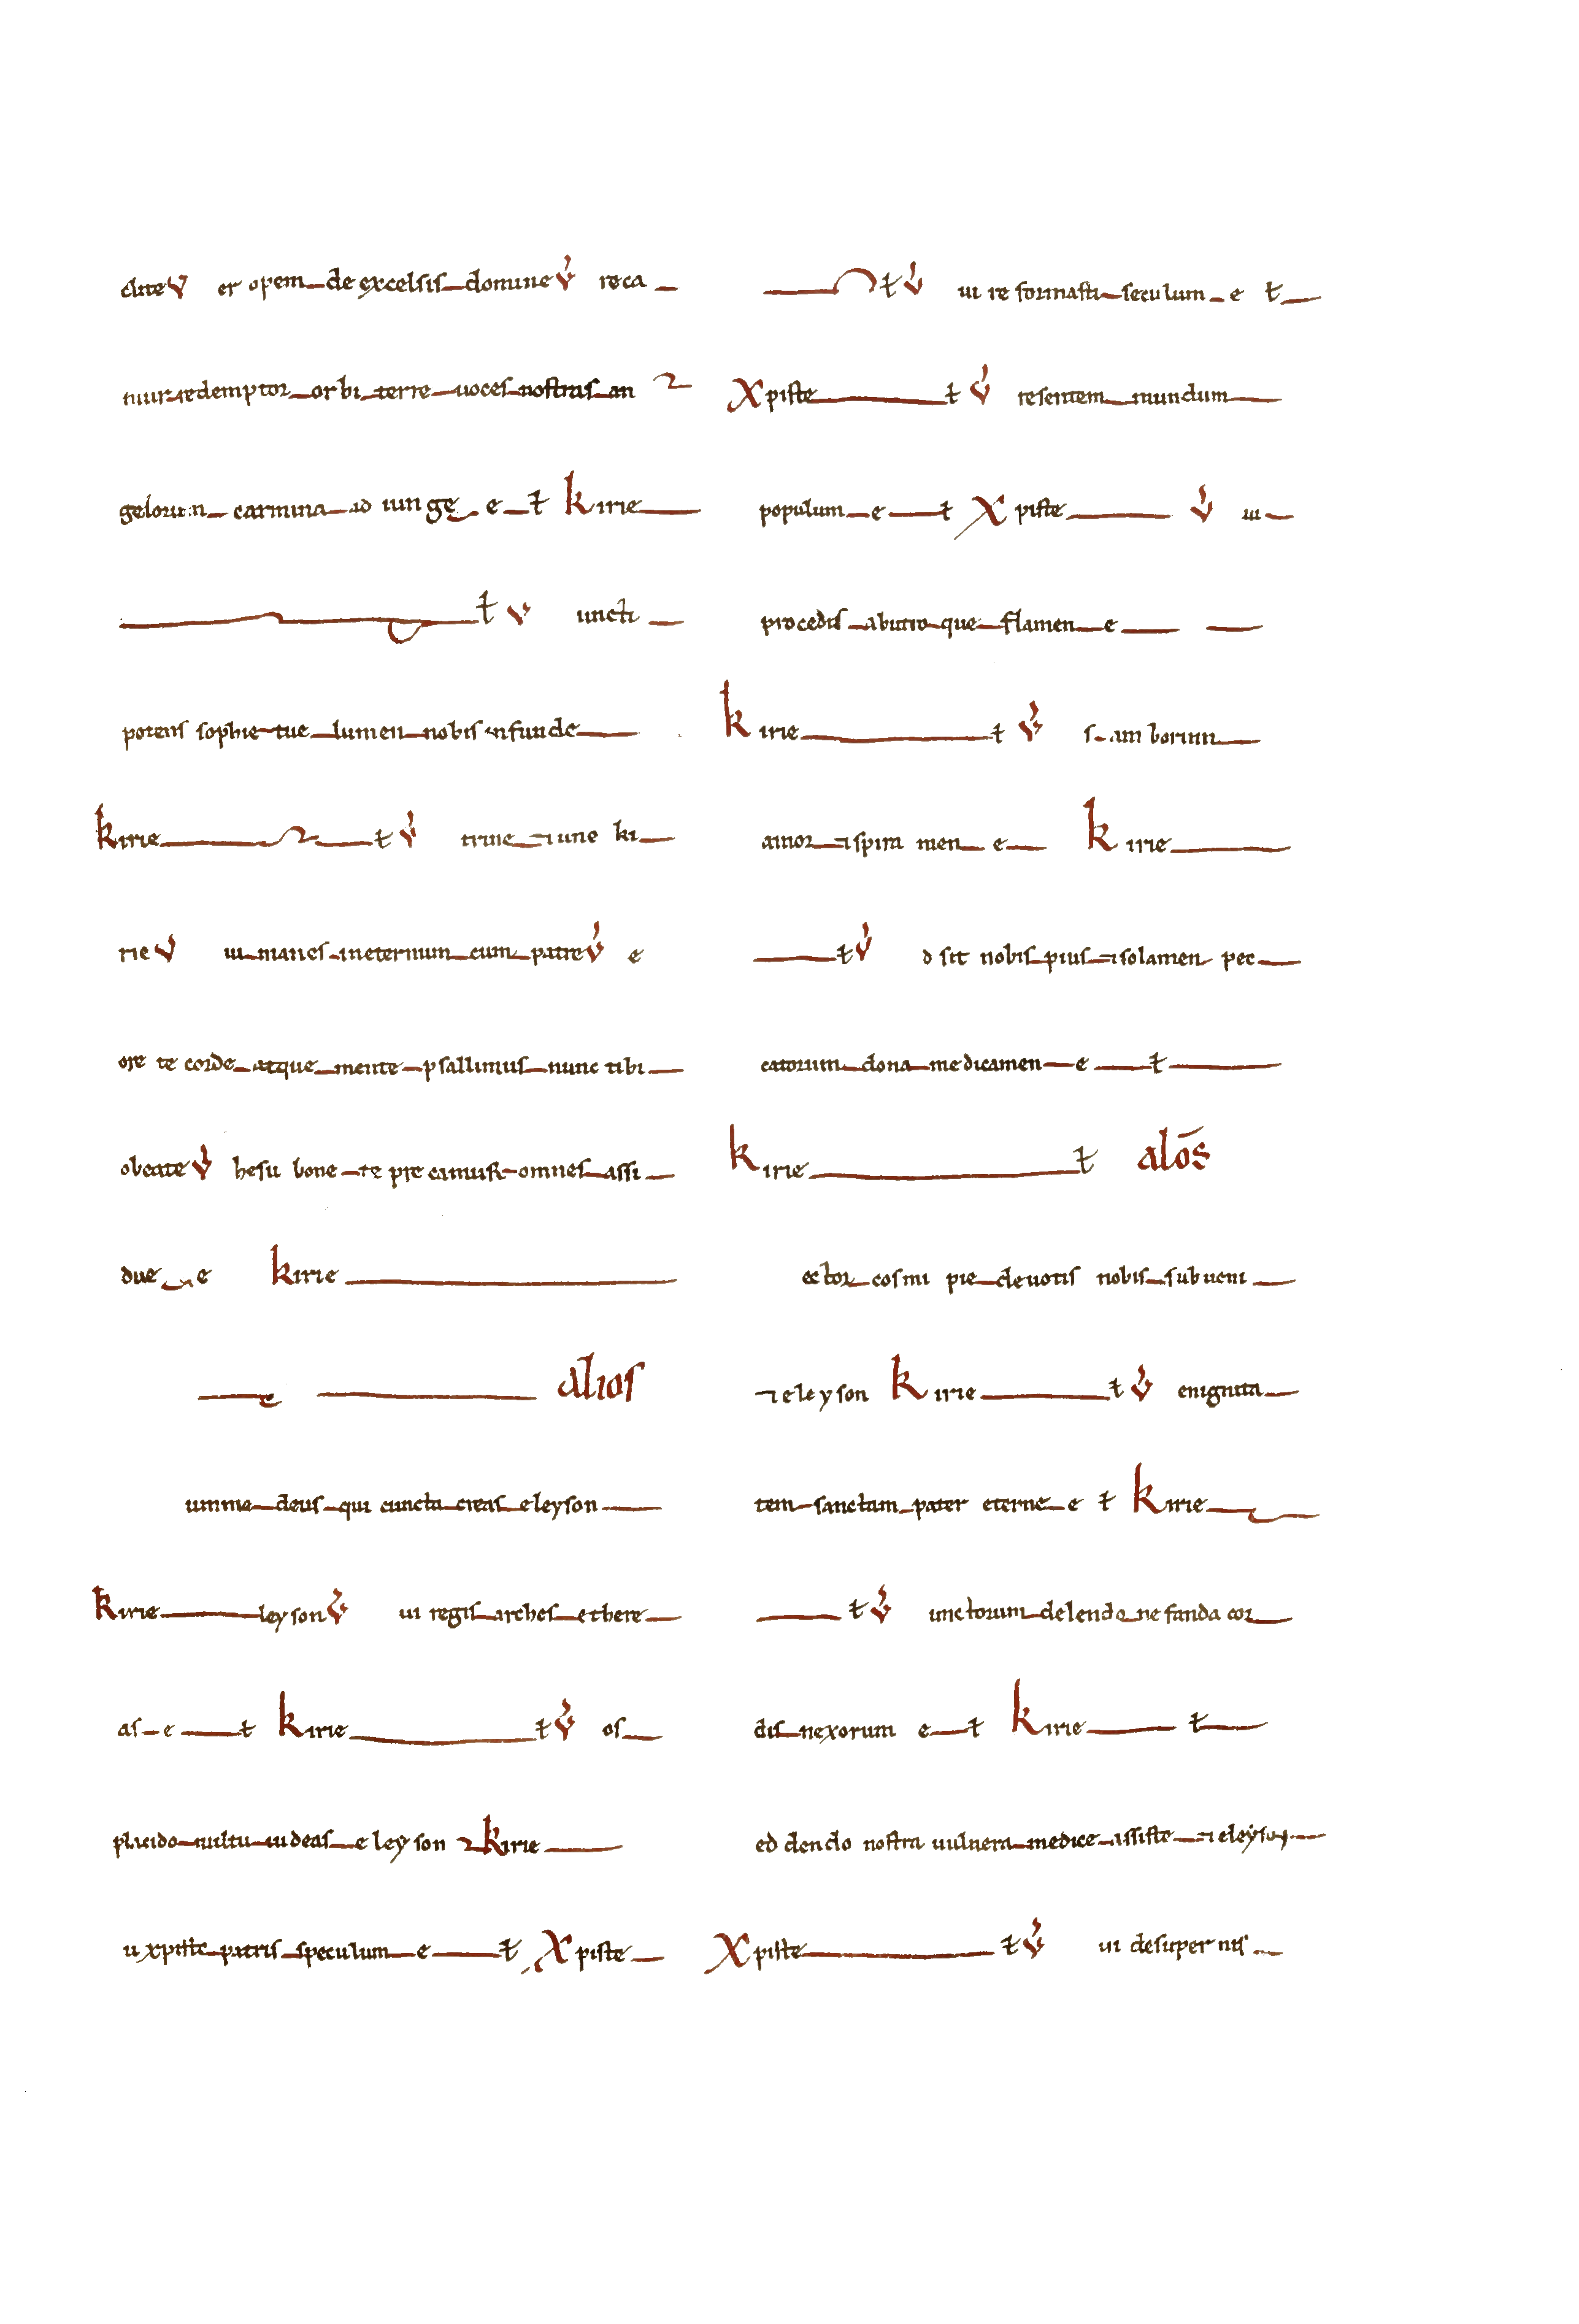 dite V er opem de excelsis domine V reca
mur redemptor orbi terre uoces nostras an
gelorum carmina ad iunge e t kirie
t V uncti
potens sophie tue lumen nobis infunde
kirie t V trine ⁊ une ki
rie V ui manes ineternum cum patre V e
ore te corde atque mente psallimus nunc tibi
obeate V hesu bone te pre camur omnes assi
due e kirie
alios
umme deus qui cuncta creas eleyson
kirie leyson V ui regis arches ethere
as e t kirie t V os
placido uultu uideas e ley son kirie
u xpiste patris speculum e t Xpiste
t V ui re formasti seculum e t
Xpiste t V resentem mundum
populum e t Xpiste V ui
procedis abutro que flamen e
kirie t V s amborum
amor ⁊ spira men e kirie
t V d sit nobis pius ⁊ solamen pec
catorum dona medicamen e t
kirie t alōs
ector cosmi pie deuotis nobis subueni
⁊ eleyson kirie t V enignita
tem sanctam pater eterne e t kirie
t V unctorum delendo ne fanda cor
dis nexorum e t kirie t
ed dendo nostra uulnera medice assiste ⁊ eleyson
Xpiste t V ui desuper nis